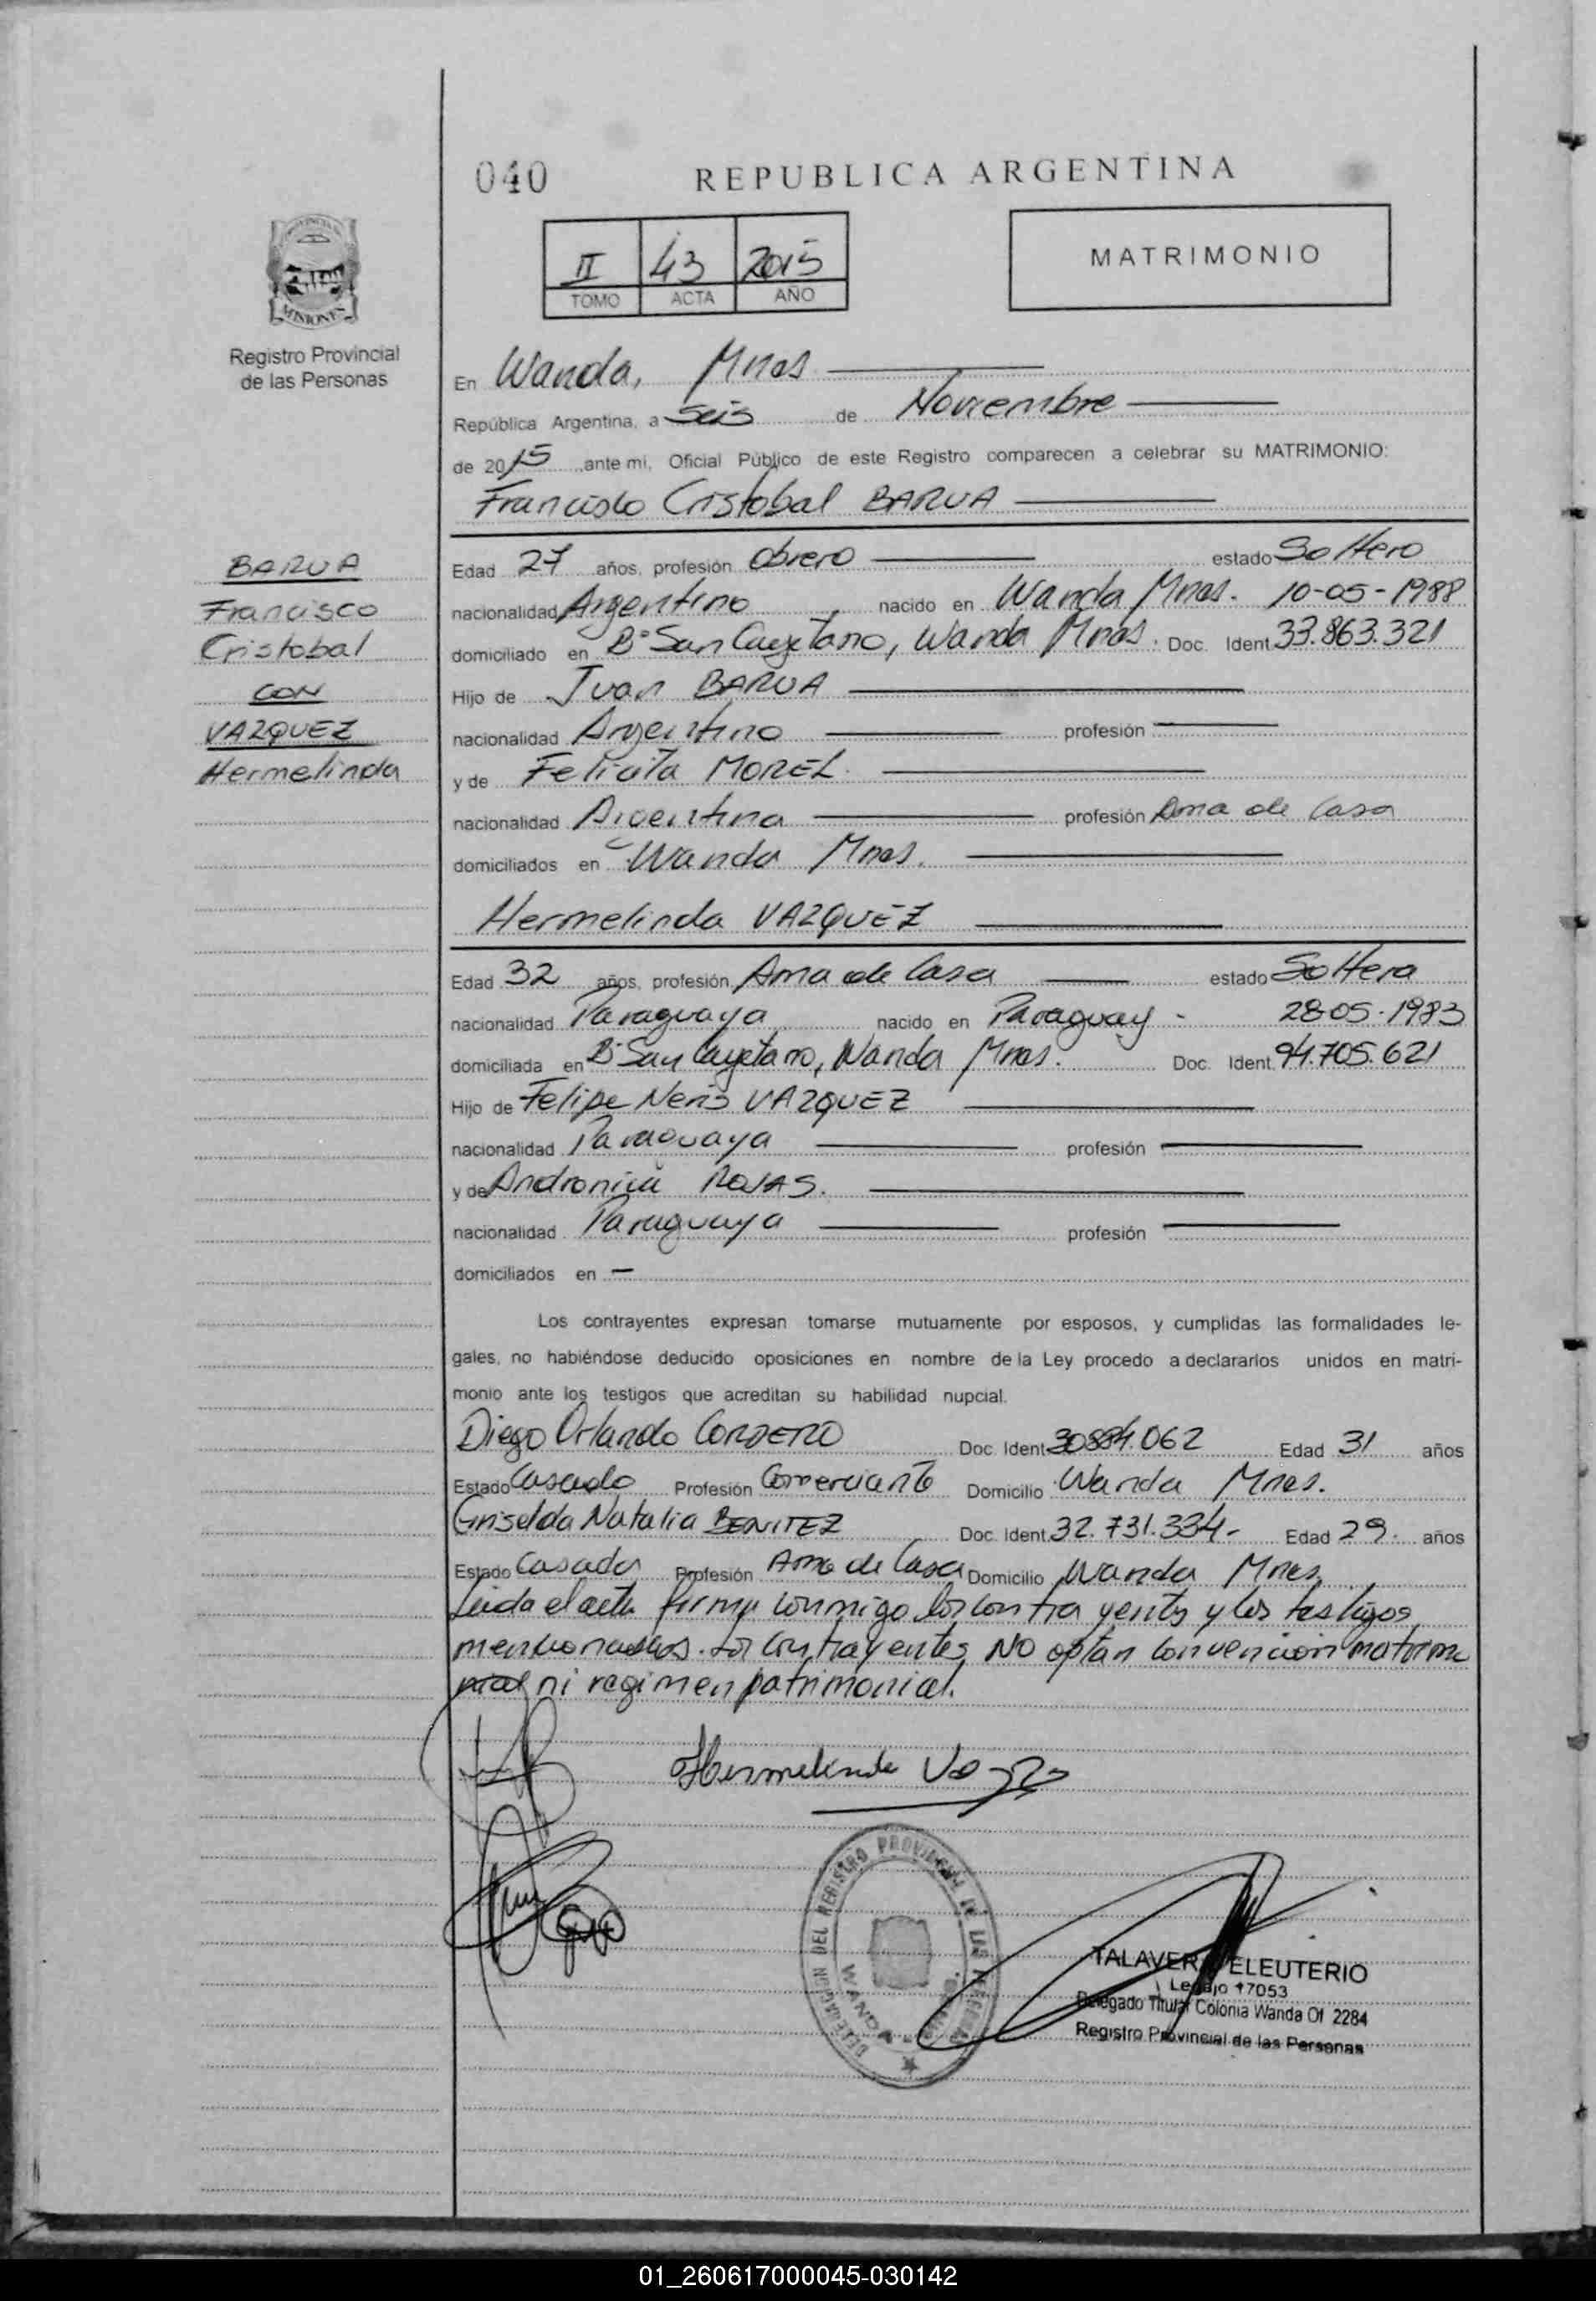 040 REPUBLICA ARGENTINA
II 43 2015
TOMO ACTA AÑO
MATRIMONIO
PROVINCIA DE MISIONES
Registro Provincial
de las Personas
En Wanda, Mnes
República Argentina, a Seis de Noviembre
de 2015 ante mi, Oficial Público de este Registro comparecen a celebrar su MATRIMONIO:
Francisco Cristobal BARUA
BARUA
Francisco
Cristobal
CON
VAZQUEZ
Hermelinda
Edad 27 años, profesión Obrero estado Soltero
nacionalidad Argentino, nacido en Wanda Mnes. 10-05-1988
domiciliado en B° San Cayetano, Wanda Mnes. Doc. Ident 33.863.321
Hijo de Juan BARUA
nacionalidad Argentino profesión
y de Felicita MOREL.
nacionalidad Argentina profesión Ama de Casa
domiciliados en Wanda Mnes.
Hermelinda VAZQUEZ
Edad 32 años, profesión Ama de Casa estado Soltera
nacionalidad Paraguaya nacido en Paraguay - 28-05-1983
domiciliada en B° San Cayetano, Wanda Mnes. Doc. Ident. 94.705.621
Hijo de Felipe Neris VAZQUEZ
nacionalidad Paraguaya profesión
y de Andronica ROJAS.
nacionalidad Paraguaya profesión
domiciliados en -
Los contrayentes expresan tomarse mutuamente por esposos, y cumplidas las formalidades le-
gales, no habiéndose deducido oposiciones en nombre de la Ley procedo a declararlos unidos en matri-
monio ante los testigos que acreditan su habilidad nupcial.
Diego Orlando CORDERO Doc. Ident 30.884.062 Edad 31 años
Estado Casado Profesión Comerciante Domicilio Wanda Mnes.
Griselda Natalia BENITEZ Doc. Ident. 32.731.334.- Edad 29 años
Estado Casada Profesión Ama de Casa Domicilio Wanda Mnes.
Leida el acta firma conmigo los contrayentes y los testigos
mencionados. Los contrayentes NO optan convencion matrimo
nial ni regimen patrimonial.
Hermelinda
DELEGACION DEL REGISTRO PROVINCIAL DE LAS PERSONAS
WANDA
TALAVERA ELEUTERIO
Legajo 17053
Delegado Titular Colonia Wanda Of 2284
Registro Provincial de las Personas
01_260617000045-030142